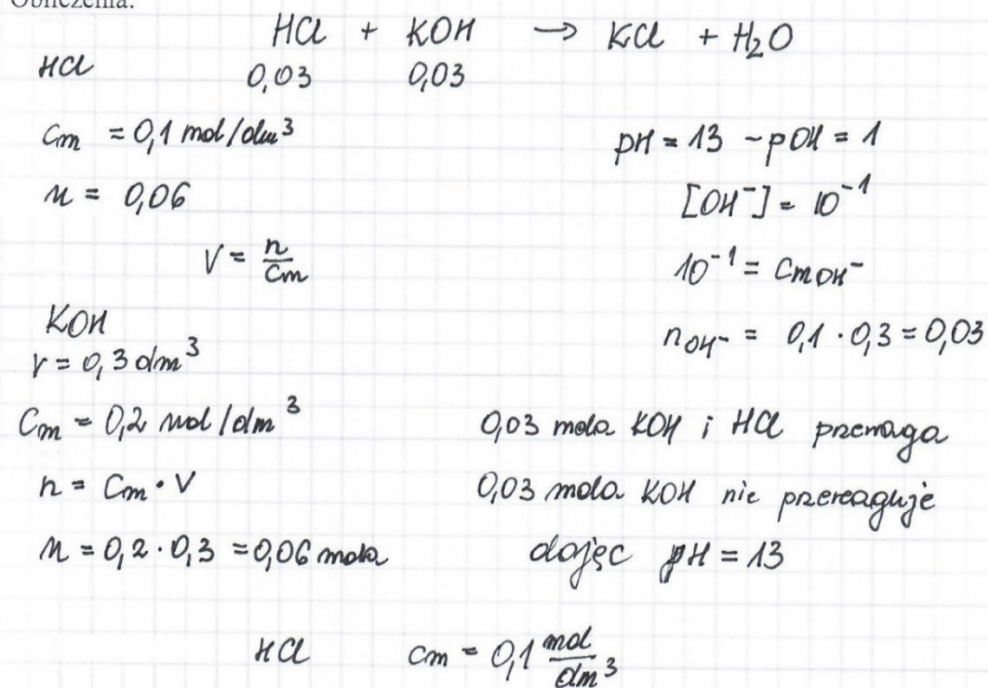 Obliczenia:
HCl + KOH → KCl + H₂O
HCl 0,03 0,03
Cm = 0,1 mol/dm³
n = 0,06
V = n/Cm
KOH
V = 0,3 dm³
Cm = 0,2 mol/dm³
n = Cm · V
n = 0,2 · 0,3 = 0,06 mola
pH = 13 - pOH = 1
[OH⁻] = 10⁻¹
10⁻¹ = CmOH⁻
nOH⁻ = 0,1 · 0,3 = 0,03
0,03 mola KOH i HCl
0,03 mola KOH nie przereaguje
dając pH = 13
HCl cm = 0,1 mol/dm³